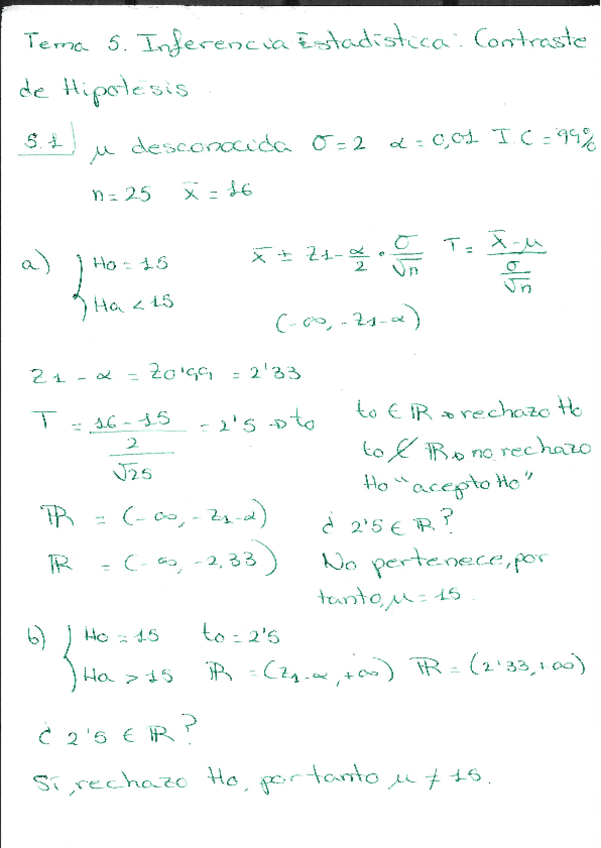 Tema 5. Inferencia Estadística: Contraste
de Hipótesis.
5.1 μ desconocida σ=2 α=0,01 I.C=99%
n=25 x̄=16
a) { Ho=15 x̄ ± z1-α/2 · σ/√n T= (x̄-μ)/(σ/√n)
Ha<15 (-∞, -z1-α)
z1-α = z0'99 = 2'33
T = (16-15)/(2/√25) = 2'5 ⇒ to to ∈ R → rechazo Ho
to ∉ R → no rechazo
Ho "acepto Ho"
R = (-∞, -z1-α) ¿ 2'5 ∈ R?
R = (-∞, -2,33) No pertenece, por
tanto, μ=15.
b) { Ho=15 to=2'5
Ha>15 R = (z1-α, +∞) R = (2'33, +∞)
¿ 2'5 ∈ R?
Sí, rechazo Ho, por tanto μ ≠ 15.